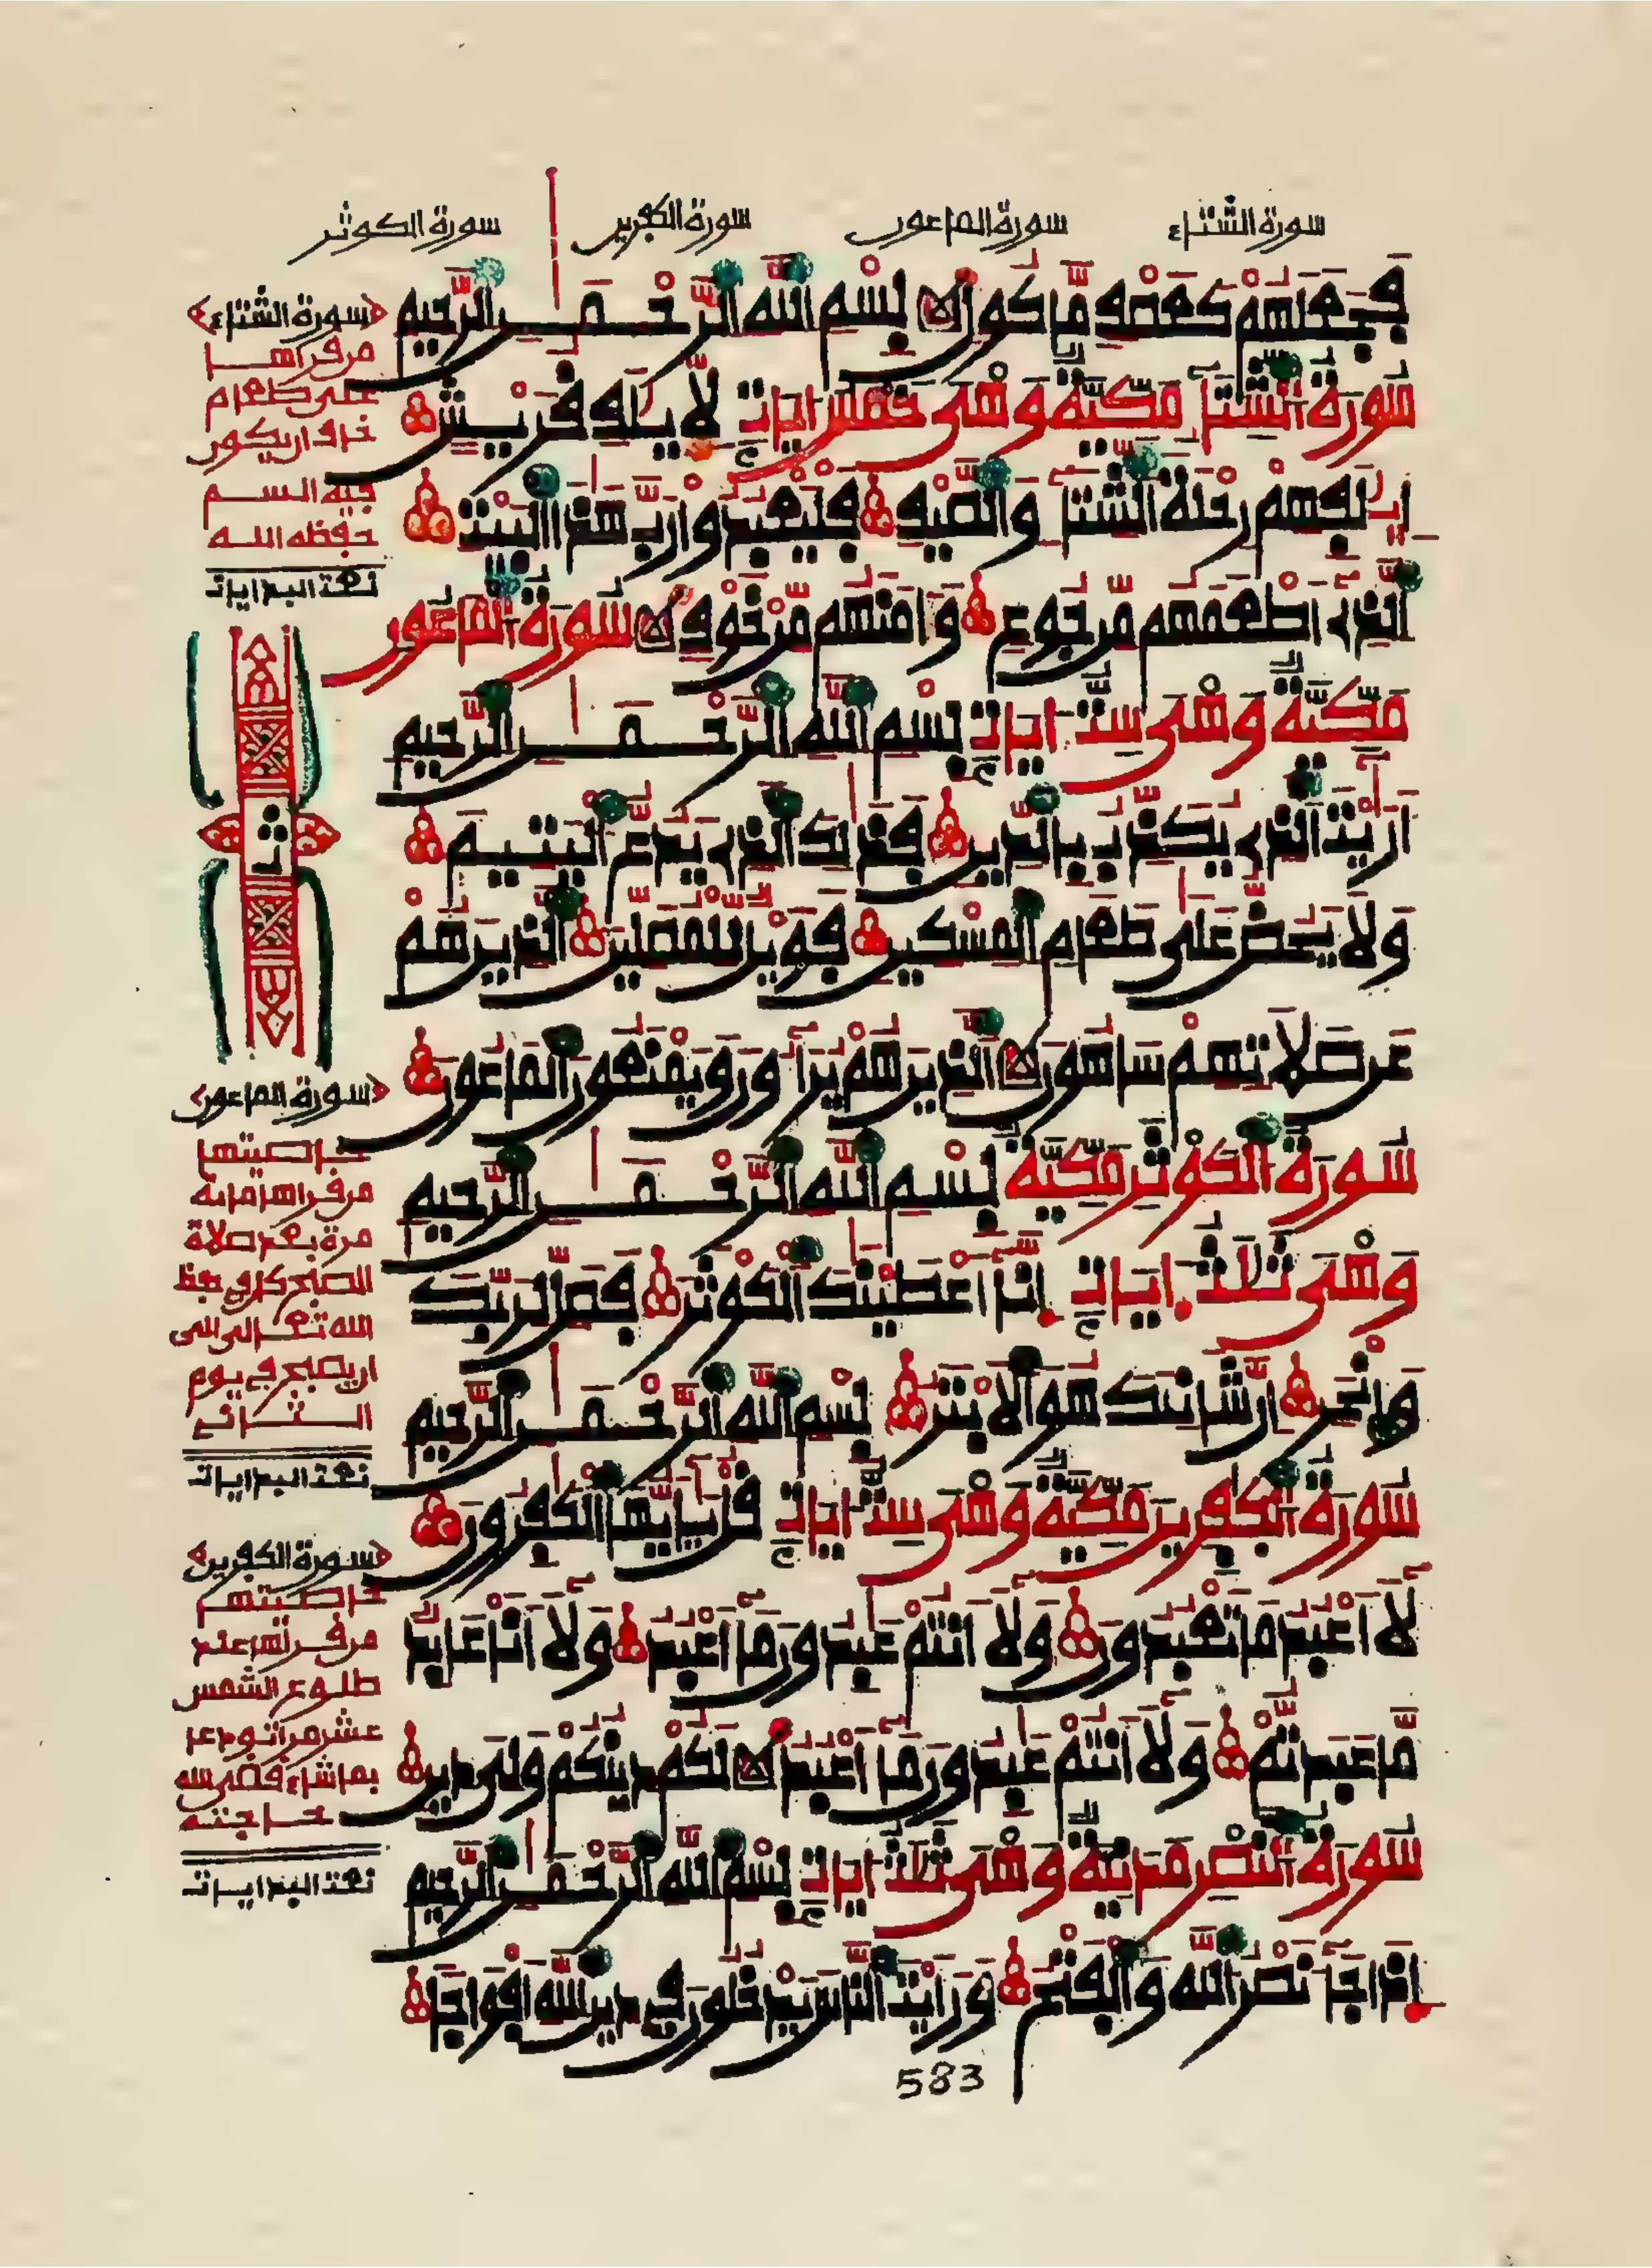 سورة الشتاء سورة الماعون سورة الكفرين سورة الكوثر
فجعلهم كعصف ماكول بسم الله الرحمن الرحيم
سورة الشتاء مكية وهي خمس ايات لايلف قريش
ايلفهم رحلة الشتاء والصيف فليعبدوا رب هذا البيت
الذي اطعمهم من جوع وءامنهم من خوف سورة الماعون
مكية وهي ست ايات بسم الله الرحمن الرحيم
اريت الذي يكذب بالدين فذلك الذي يدع اليتيم
ولا يحض على طعام المسكين فويل للمصلين الذين هم
عن صلاتهم ساهون الذين هم يراءون ويمنعون الماعون
سورة الكوثر مكية بسم الله الرحمن الرحيم
وهي ثلث ايات انا اعطينك الكوثر فصل لربك
وانحر ان شانئك هو الابتر بسم الله الرحمن الرحيم
سورة الكفرين مكية وهي ست ايات قل يايها الكفرون
لا اعبد ما تعبدون ولا انتم عبدون ما اعبد ولا انا عابد
ما عبدتم ولا انتم عبدون ما اعبد لكم دينكم ولي دين
سورة النصر مدنية وهي ثلث ايات بسم الله الرحمن الرحيم
اذا جاء نصر الله والفتح ورايت الناس يدخلون في دين الله افواجا
583
سورة الشتاء
من قراها
على طعام
خاف ان يكون
فيه السم
حفظه الله
تمت البدايات
سورة الماعون
خاصيتها
من قراها مائة
مرة بعد صلاة
الصبح كان في حفظ
الله تعالى الى
ان يصبح في يوم
الثاني
تمت البدايات
سورة الكفرين
خاصيتها
من قراها عند
طلوع الشمس
عشر مرات ودعا
بما شاء قضى الله
حاجته
تمت البدايات